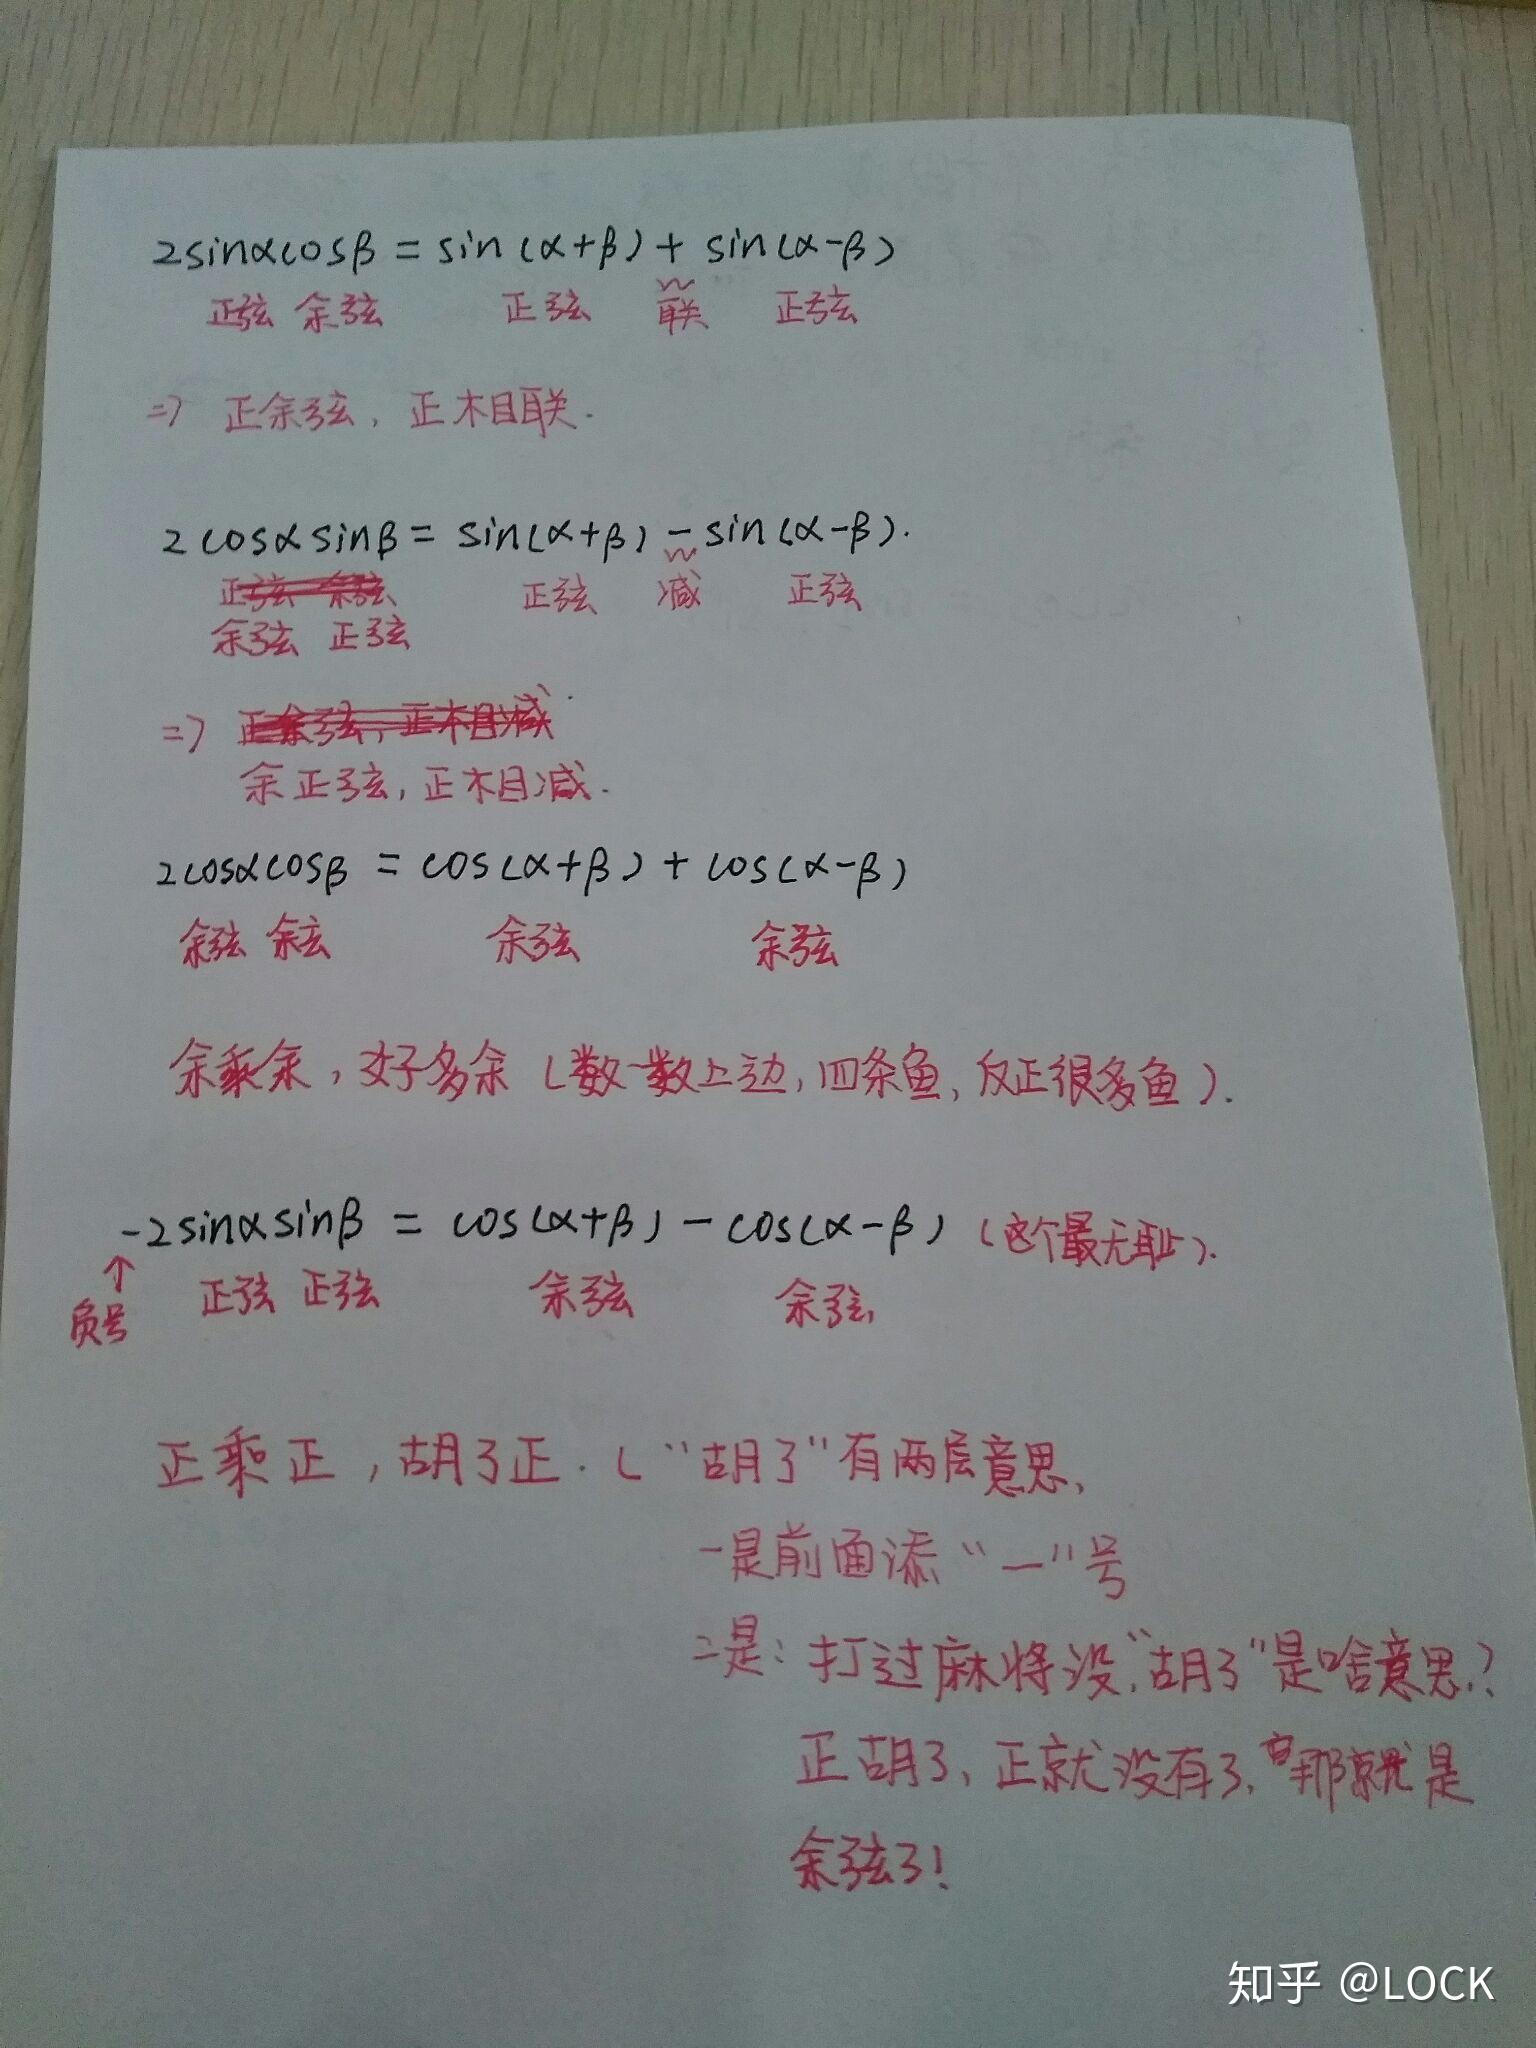 2sinαcosβ = sin(α+β) + sin(α-β)
正弦 余弦 正弦 联 正弦
=> 正余弦, 正相联.
2cosαsinβ = sin(α+β) - sin(α-β).
正弦 余弦 正弦 减 正弦
余弦 正弦
=> 正余弦, 正相减.
余正弦, 正相减.
2cosαcosβ = cos(α+β) + cos(α-β)
余弦 余弦 余弦 余弦
余乘余, 好多余 (数一数上边, 四条鱼, 反正很多鱼).
-2sinαsinβ = cos(α+β) - cos(α-β) (这个最无耻).
↑ 正弦 正弦 余弦 余弦
负号
正乘正, 胡了正. ("胡了"有两层意思,
一是前面添"一"号
二是: 打过麻将没, "胡了"是啥意思?
正胡了, 正就没有了, 那就是
余弦了!
知乎 @LOCK